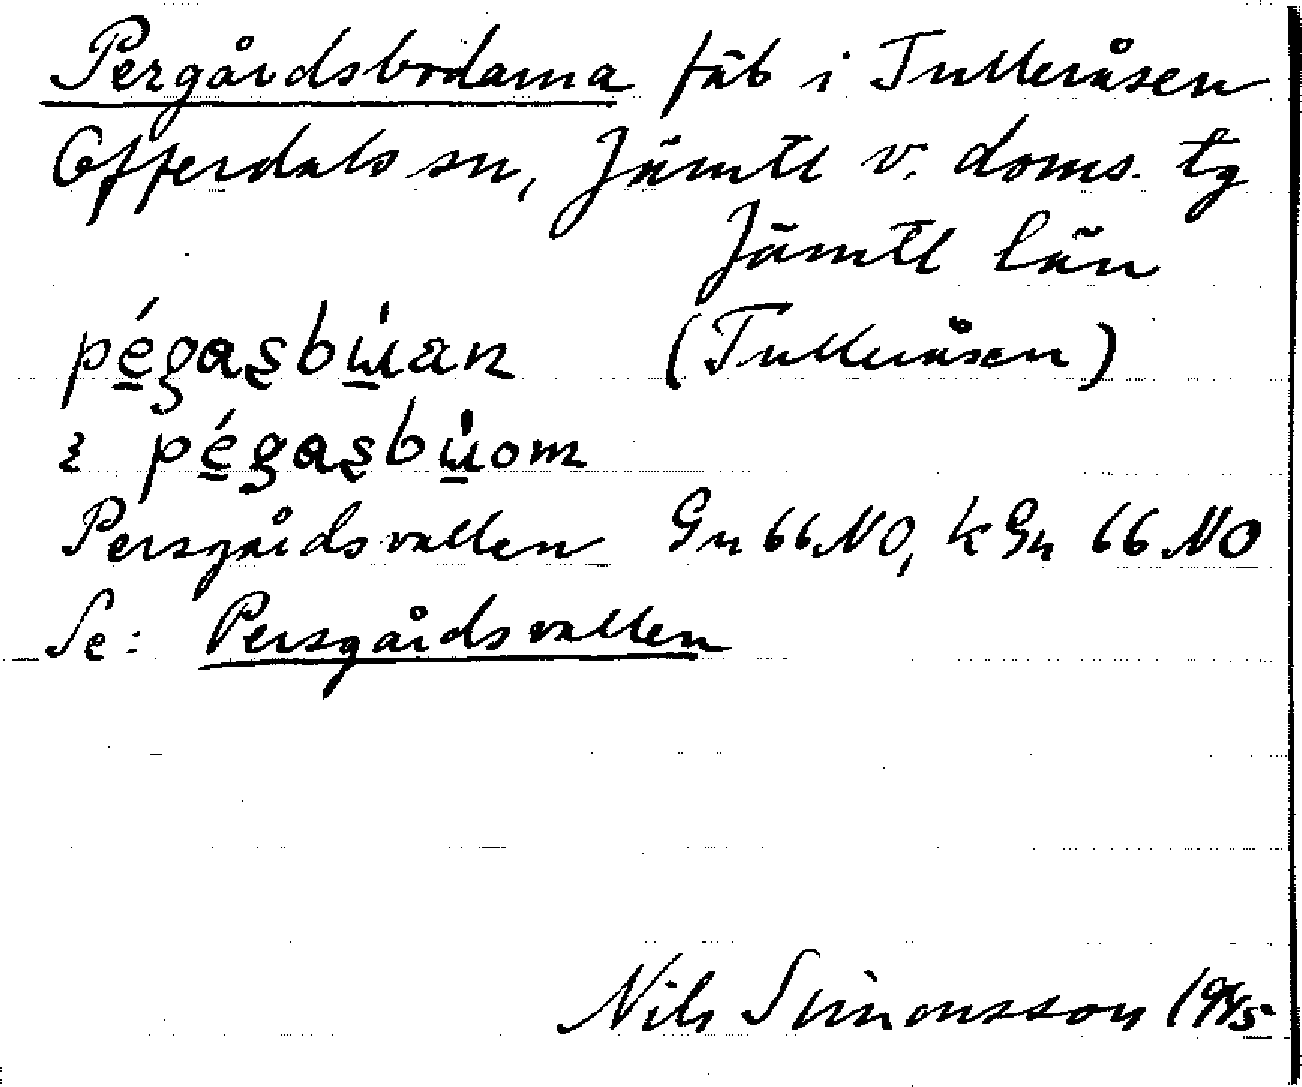 Pergårdsbodarna fäb i Tulleråsen
Offerdals sn, Jämtl v. doms. tg
Jämtl län
pégasbúan (Tulleråsen)
ɿ pégasbúom
Persgårdsvallen Gn 66 NO, kGn 66 NO
Se: Persgårdsvallen
Nils Simonsson 1945